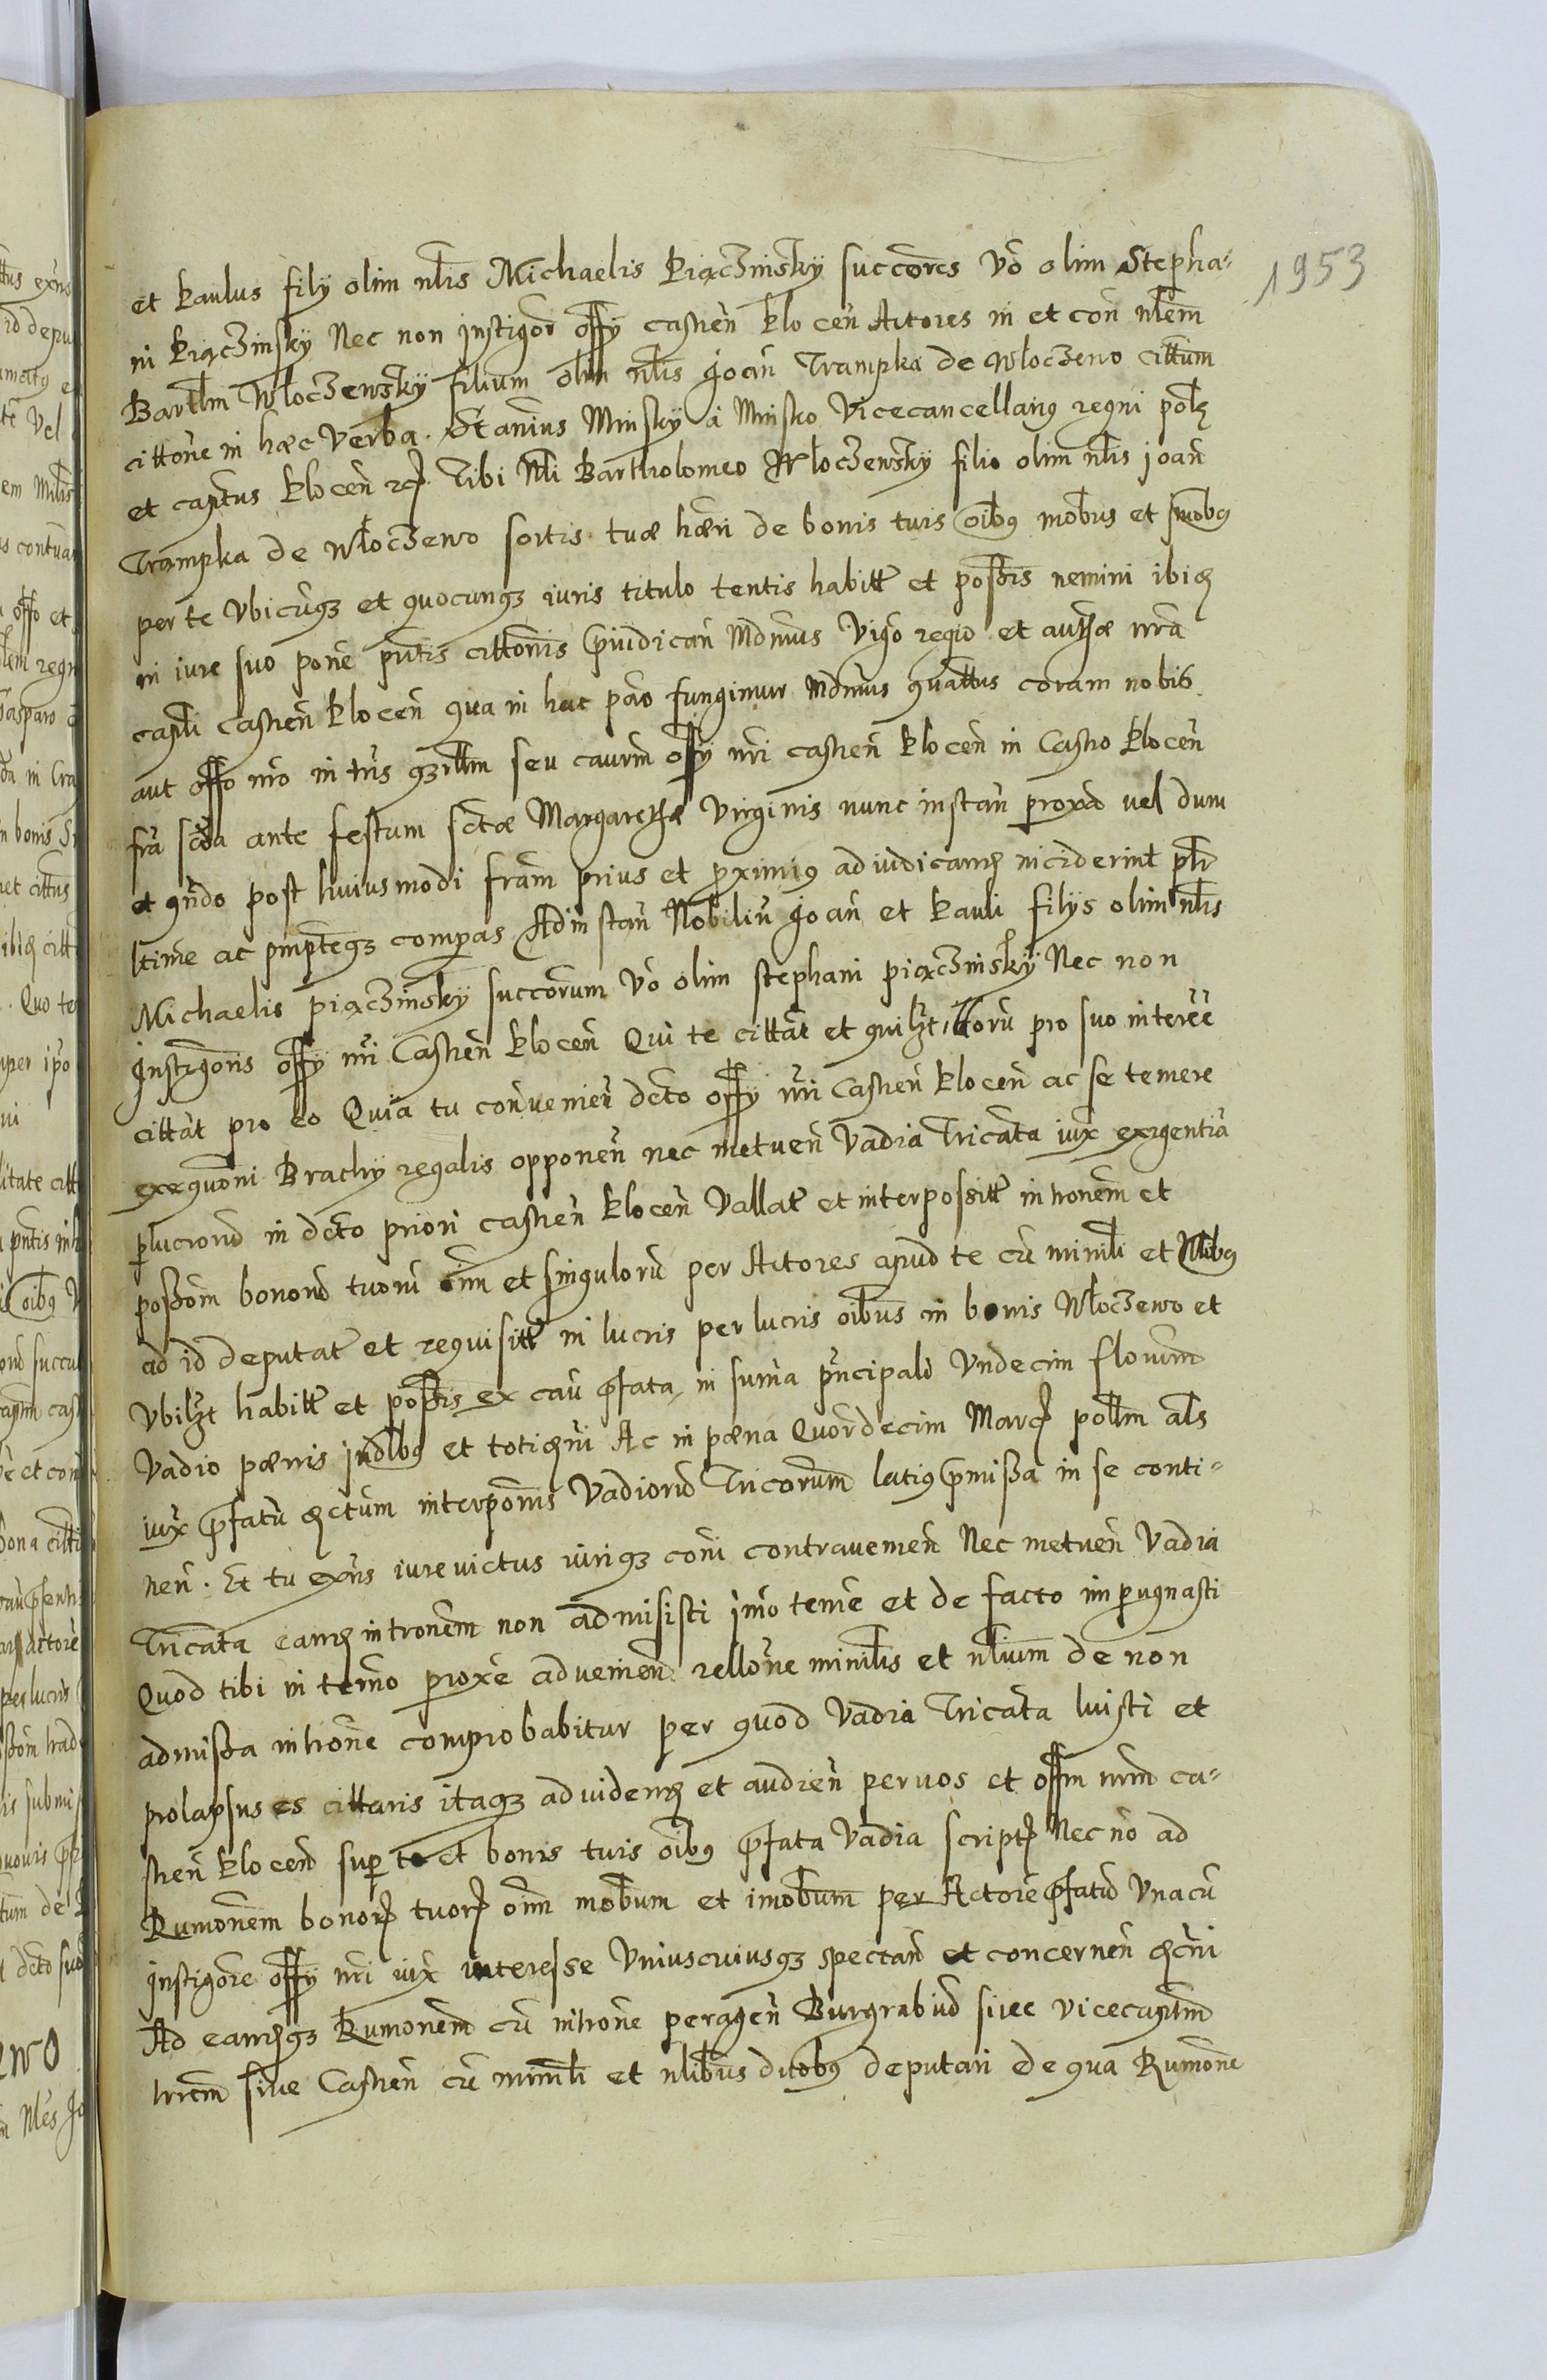 1953
et Paulus filÿ olim nlis Michaelis PiączinskŸ succores vo olim Stepha-
ni PiączinskŸ Nec non Instigor offÿ castren klocen Actores in et con nlem
Bartlm WłoczewskŸ filium olim nlis Joan Trampka de Włoczewo cittum
cittone in hæc verba. Stanius MinskŸ á Minsko Vicecancellarius regni pol
et captus klocen etc. Tibi Nli Bartholomeo WłoczewskŸ filio olim nlis Joan
Trampka de Włoczewo sortis tuæ hæri de bonis tuis oibus mobus et imobus
per te vbicunqz et quocunqz iuris titulo tentis habitt et possis nemini ibid
in iure suo pone pntis cittonis præiudican Mdmus vigo regio et authæ nra
captli castren klocen qua in hac pao fungimur Mdmus quattus coram nobis
aut offo nro in tris qzrllm seu caurm offÿ nri castren klocen in Castro klocen
fra scda ante festum sctæ Margarethæ Virginis nunc instan proxa vel dum
et qndo post huiusmodi fram prius et proximius adiudicand inciderint plr
ltime ac pmptreqz compas Ad instan Nobiliu Joan et Pauli filÿs olim nlis
Michaelis piączinskŸ succorum vo olim stephani piączinskŸ Nec non
Instigoris offÿ nri Castren klocen Qui te cittat et quilzt illoru pro suo interee
cittat pro eo Quia tu conuenien dcto offÿ nri Castren klocen ac se temere
exequoni Brachÿ regalis opponen nec metuen Vadia Tricata iux exigentia
plucrorum in dcto priori castren klocen Vallat et interpossitt intronem et
possom bonoru tuoru oim et singuloru per Actores apud te cu minrli et Nlibus
ad id deputat et requisitt in lucris per lucris oibus in bonis Włoczewo et
vbilzt habitt et possis ex cau pfata in suma pncipali Vndecim florum
Vadio pænis Judlbus et totidni Ac in pæna Quordecim Marc pollm als
iux pfatu dctum interponis Vadioru Tricorum latius pmissa in se conti-
nen. Et tu exns iure victus iuriqz coni contrauenien Nec metuen Vadia
Tricata eand intronem non admisisti Imo teme et de facto impugnasti
Quod tibi in termo proxe aduenien rellone minrlis et nlium de non
admissa introne comprobabitur per quod Vadia Tricata luisti et
prolapsus es cittaris itaqz ad vidend et audien per nos et offm nrm ca-
stren klocen sup te et bonis tuis oibus pfata Vadia script Nec no ad
Rumonem bonor tuor oim mobum et imobum per Actore pfatu Vna cu
Instigore offÿ nri iux interesse Vniuscuiusqz spectan et concernen dcni
Ad eandqz Rumonem cu introne peragen Burgrabiu siue vicecaptm
trrem siue Castren cu minrli et nlibus duobus deputari de qua Rumone